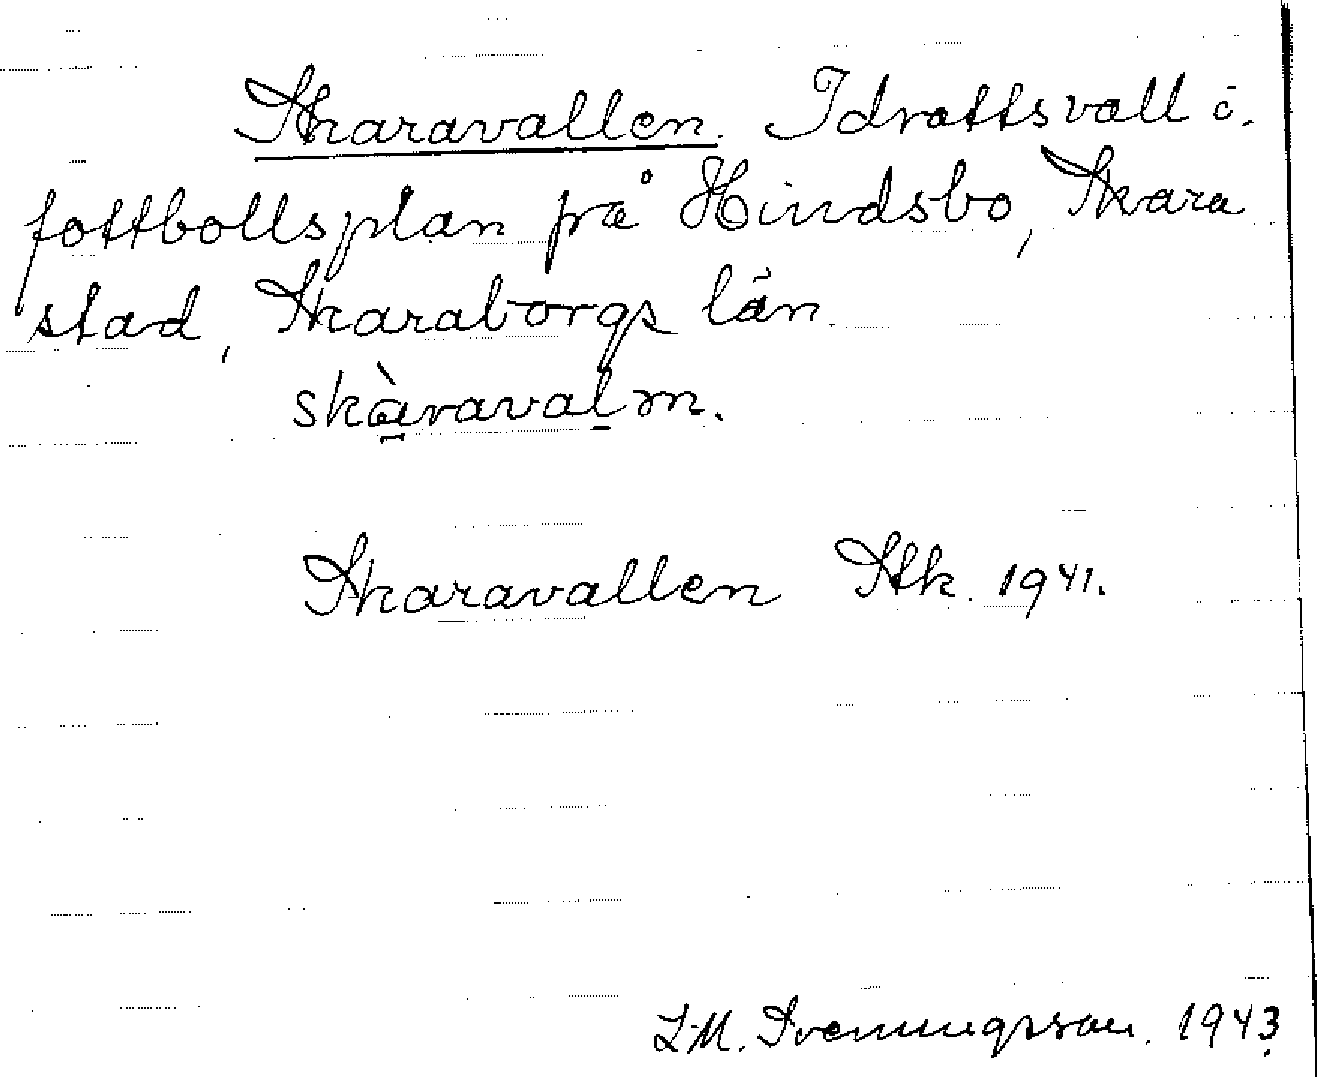 Skaravallen. Idrottsvall i.
fottbollsplan på Hindsbo, Skara
stad, Skaraborgs län.
skàravalm.
Skaravallen Stk. 1941.
L.M. Svenungsson. 1943.